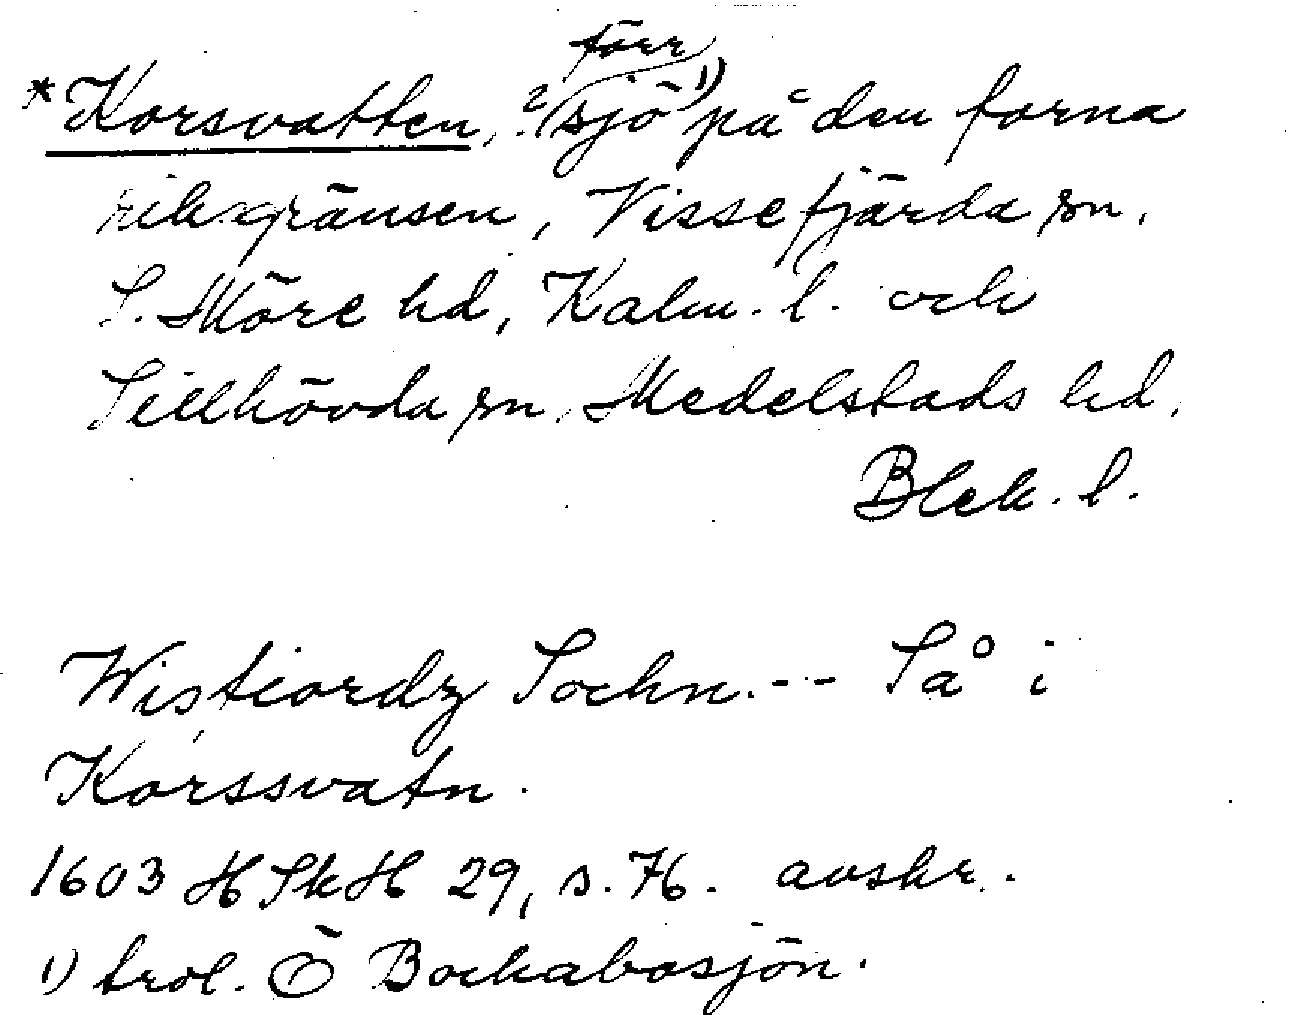 förr
*Korsvatten, ?(sjö 1) på den forna
riksgränsen, Vissefjärda sn,
S. Möre hd, Kalm. l. och
Sillhövda sn, Medelstads hd,
Blek. l.
Wisfiordz Sochn. -- Så i
Korssvatn.
1603 HSkH 29, s. 76. avskr.
1) trol. Ö Bockabosjön.